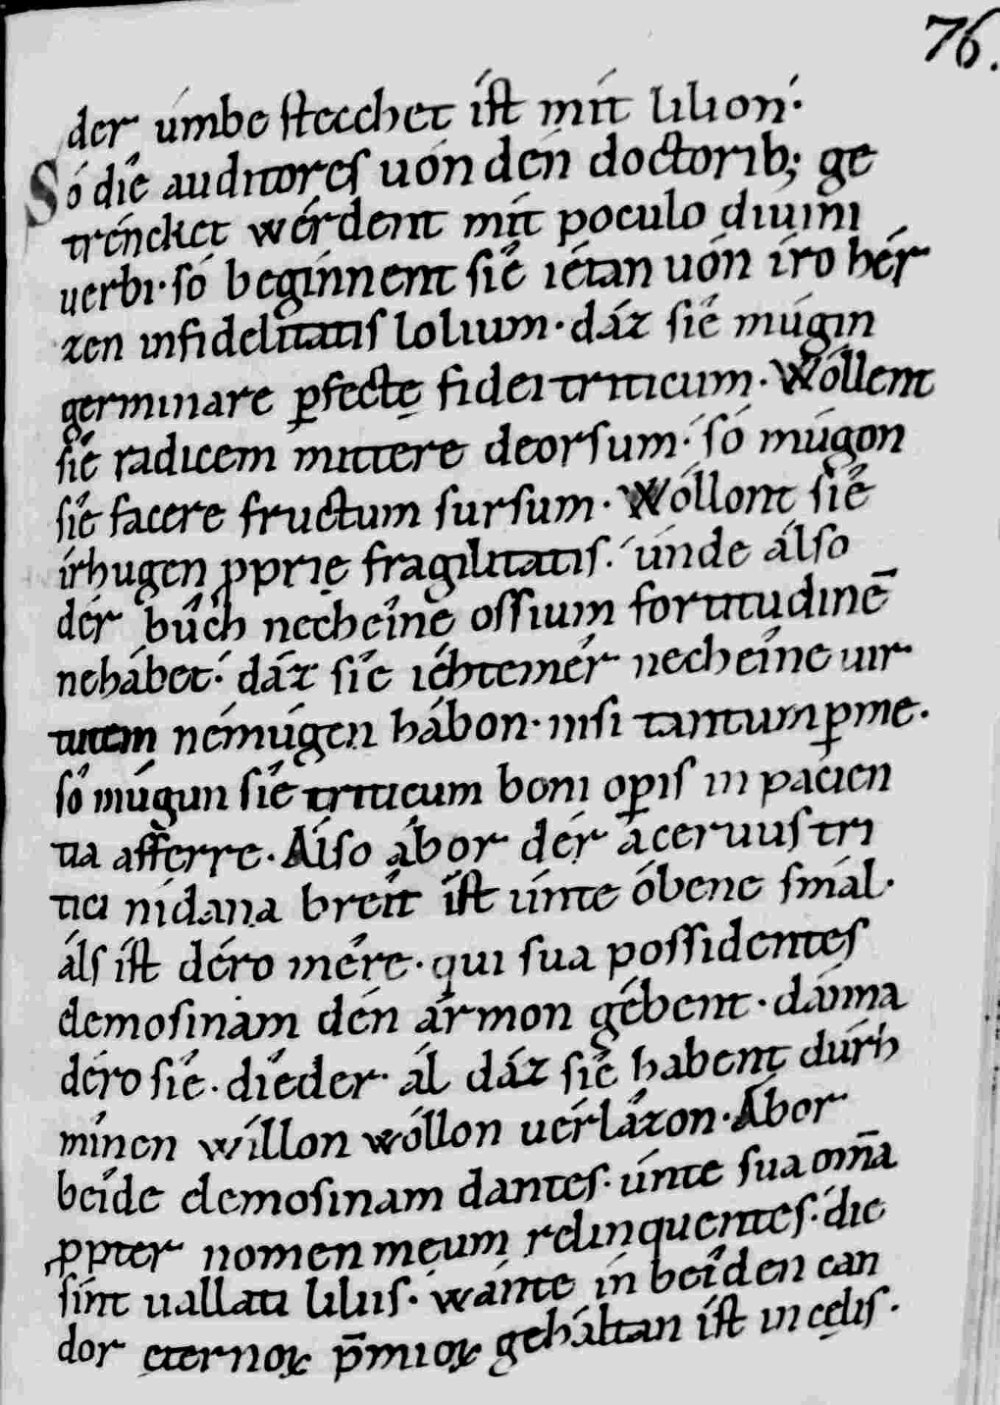 76.
der úmbe stecchet íst mít lilion·
Só díe auditores uón dén doctorib; ge
trénchet wérdent mít poculo diuini
uerbi· só begínnent síe iétan uón íro hér
zen infidelitatis lolium· dáz síe múgin
germinare ꝑfectę fidei triticum· Wóllent
síe radicem mittere deorsum· só múgon
síe facere fructum sursum· Wóllont síe
írhugen ꝓprię fragilitatis· únde álso
dér bûch necheîne ossium fortitudinē
nehábet· dáz síe iéhtemér necheîne uir
tutem nemúgen hábon· nisi tantum ꝑ me·
só múgun síe triticum boni oꝑis in pacien
tia afferre· Álso ábor dér aceruus tri
tici nídana breít íst únte óbene smál·
áls íst déro mére· qui sua possidentes
elemosinam dén ármon gébent· dánna
déro síe· díeder ál dáz síe habent dúrh
mínen wíllon wóllon uérlázon· Ábor
beíde elemosinam dantes· únte sua om̄a
ꝓpter nomen meum relinquentes· díe
sínt uallati liliis· wánte ín beîden can
dor ęternoꝝ p̄mioꝝ geháltan íst in cęlis·